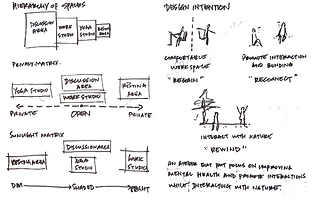 HIERARCHY OF SPACES
DISCUSSION
AREA
WORK
STUDIO
YOGA
STUDIO
PRIVACY MATRIX.
YOGA STUDIO
DISCUSSION
AREA
WORK STUDIO
RESTING
AREA
PRIVATE
OPEN
PRIVATE
SUNLIGHT MATRIX
RESTING AREA
DISCUSSION AREA
YOGA
STUDIO
WORK
STUDIO
DIM
SHADED
BRIGHT
DESIGN INTENTION
COMFORTABLE
WORKSPACE
"REGAIN"
PROMOTE INTERACTION
AND BONDING
"RECONNECT"
INTERACT WITH NATURE
"REWIND"
AN ATELIER THAT FOCUS ON IMPROVING
MENTAL HEALTH AND PROMOTE INTERACTIONS
WHILE INTERACTING WITH NATURE.